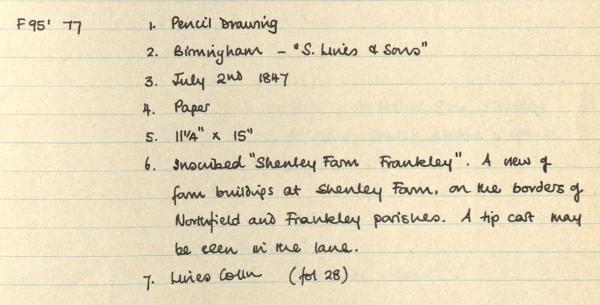 F95' 77 1. Pencil Drawing
2. Birmingham - "S. Lines & Sons"
3. July 2nd 1847
4. Paper
5. 11¼" x 15"
6. Inscribed "Shenley Farm Frankley". A view of
farm buildings at Shenley Farm, on the borders of
Northfield and Frankley parishes. A tip cart may
be seen in the lane.
7. Lines Colln (fol 28)